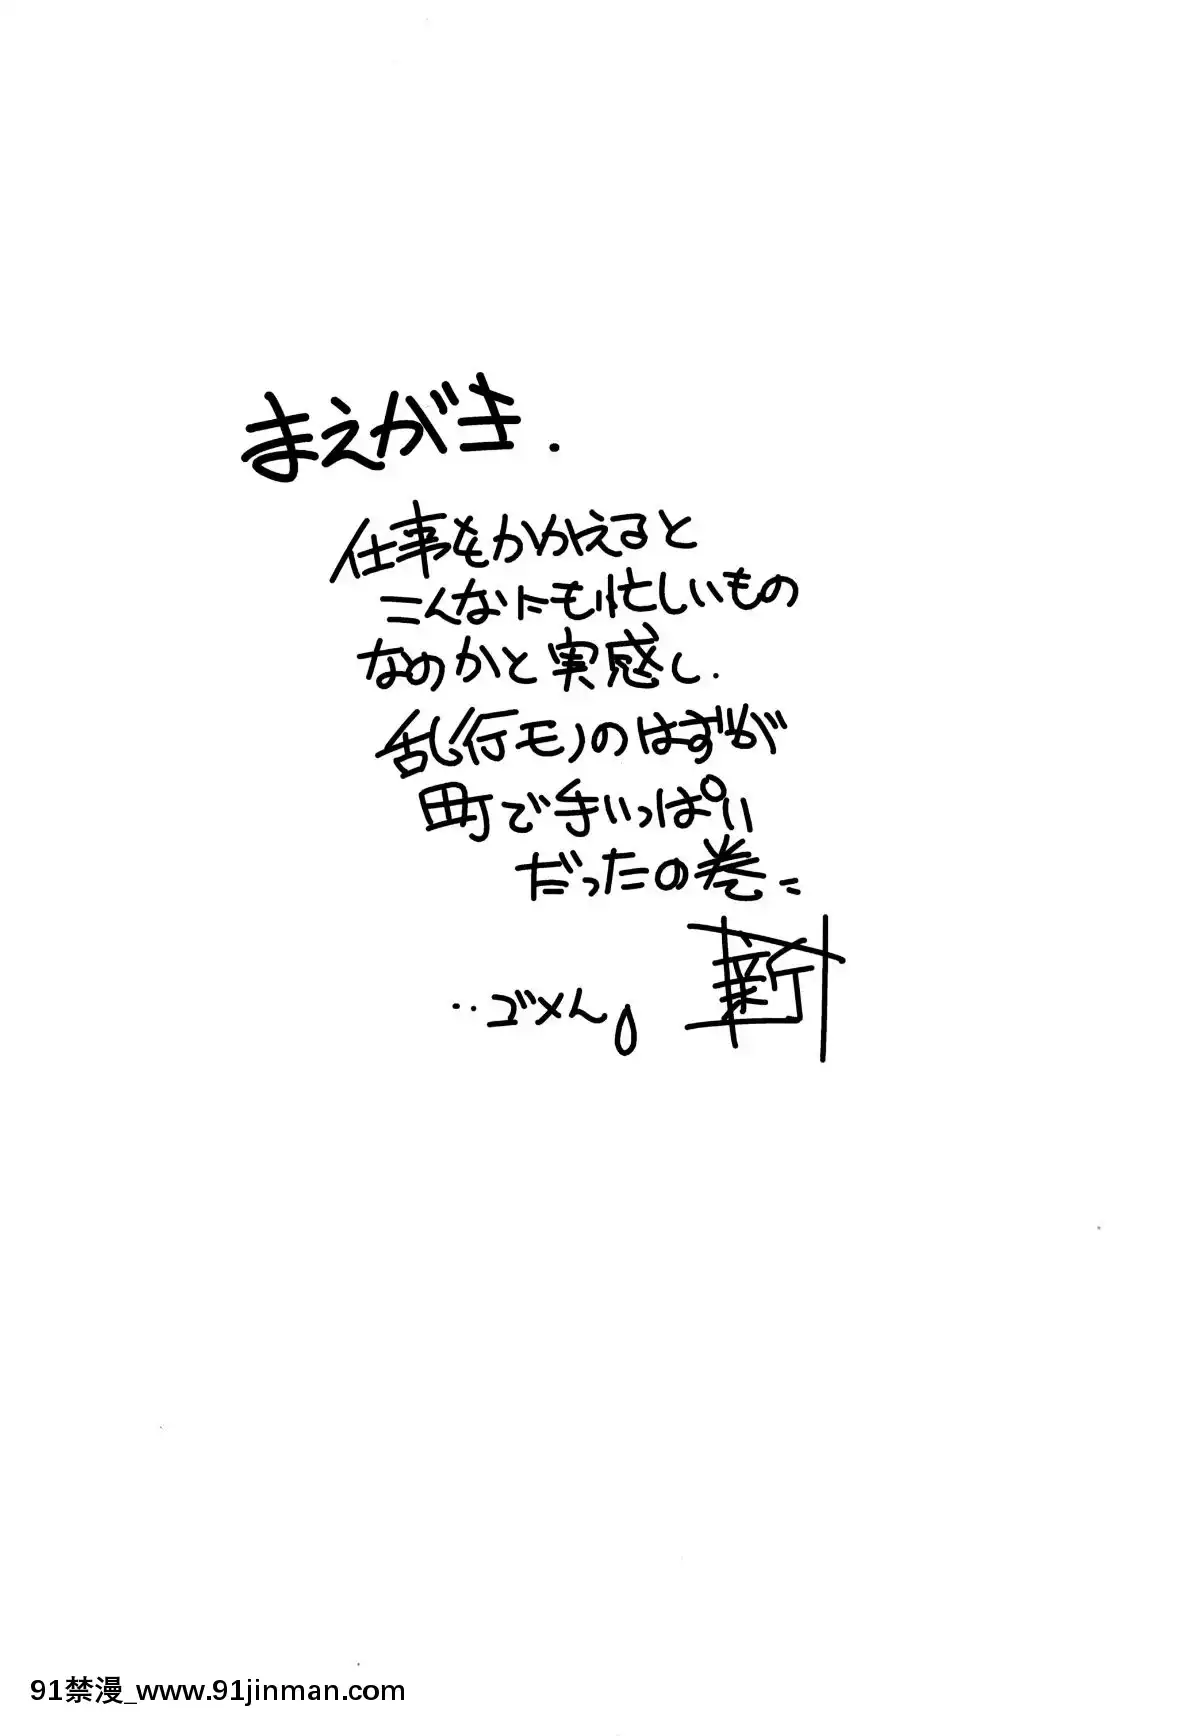 まえがき.
仕事をかかえると
こんなにも忙しいもの
なのかと実感し.
乱行モノのはずが
町で手いっぱい
だったの巻
‥ゴメん。
新
91禁漫_www.91jinman.com